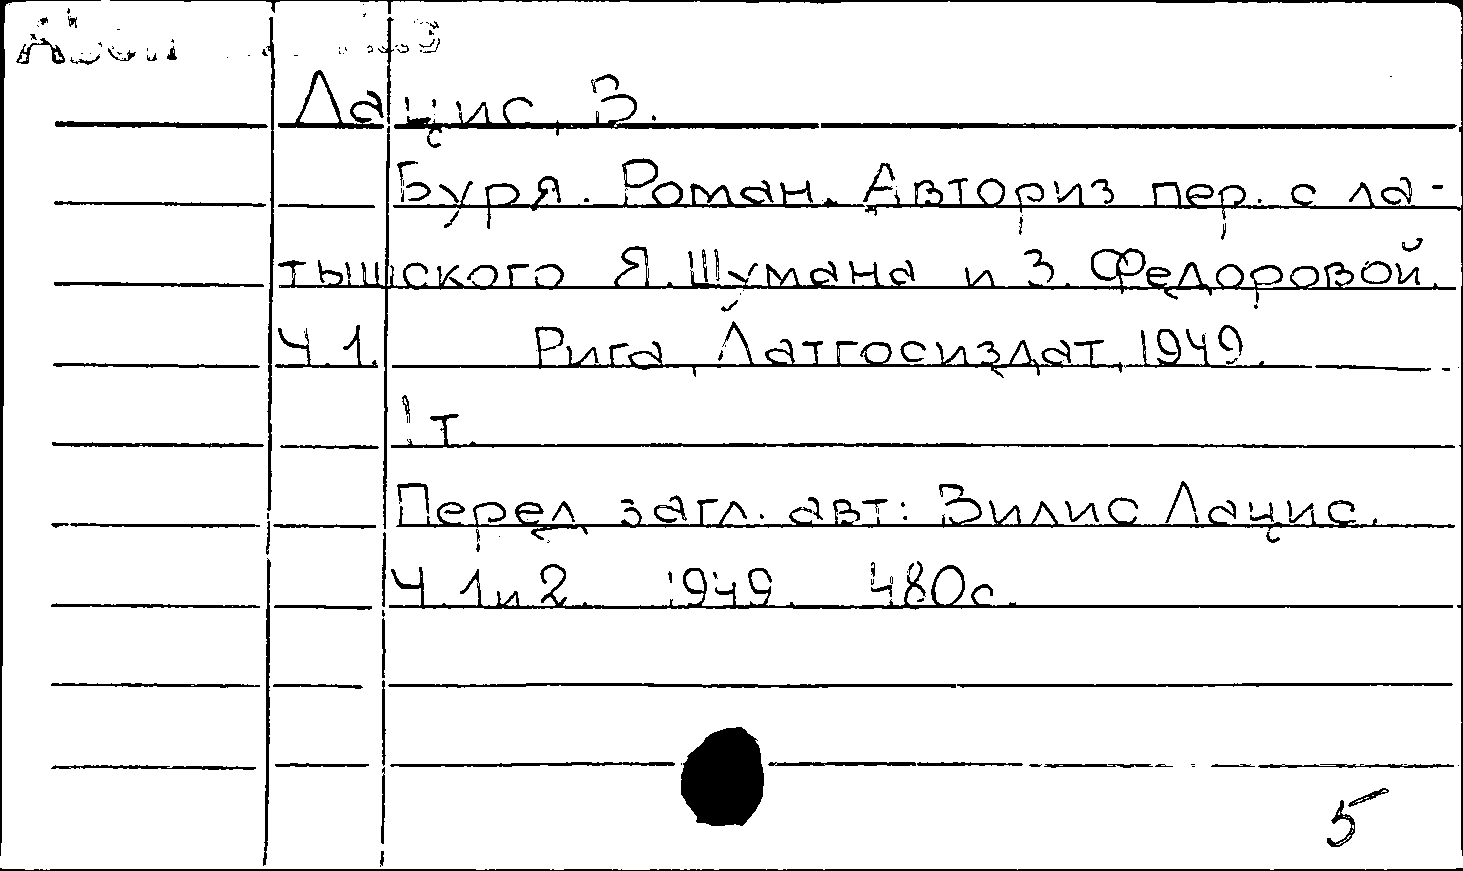 Лацис, В.
Буря. Роман. Авториз пер. с ла-
тышского Я. Шумана и З. Федоровой.
Ч 1. Рига, Латгосиздат, 1949.
1 т.
Перед загл. авт: Вилис Лацис.
Ч. 1 и 2. 1949. 480с.
5